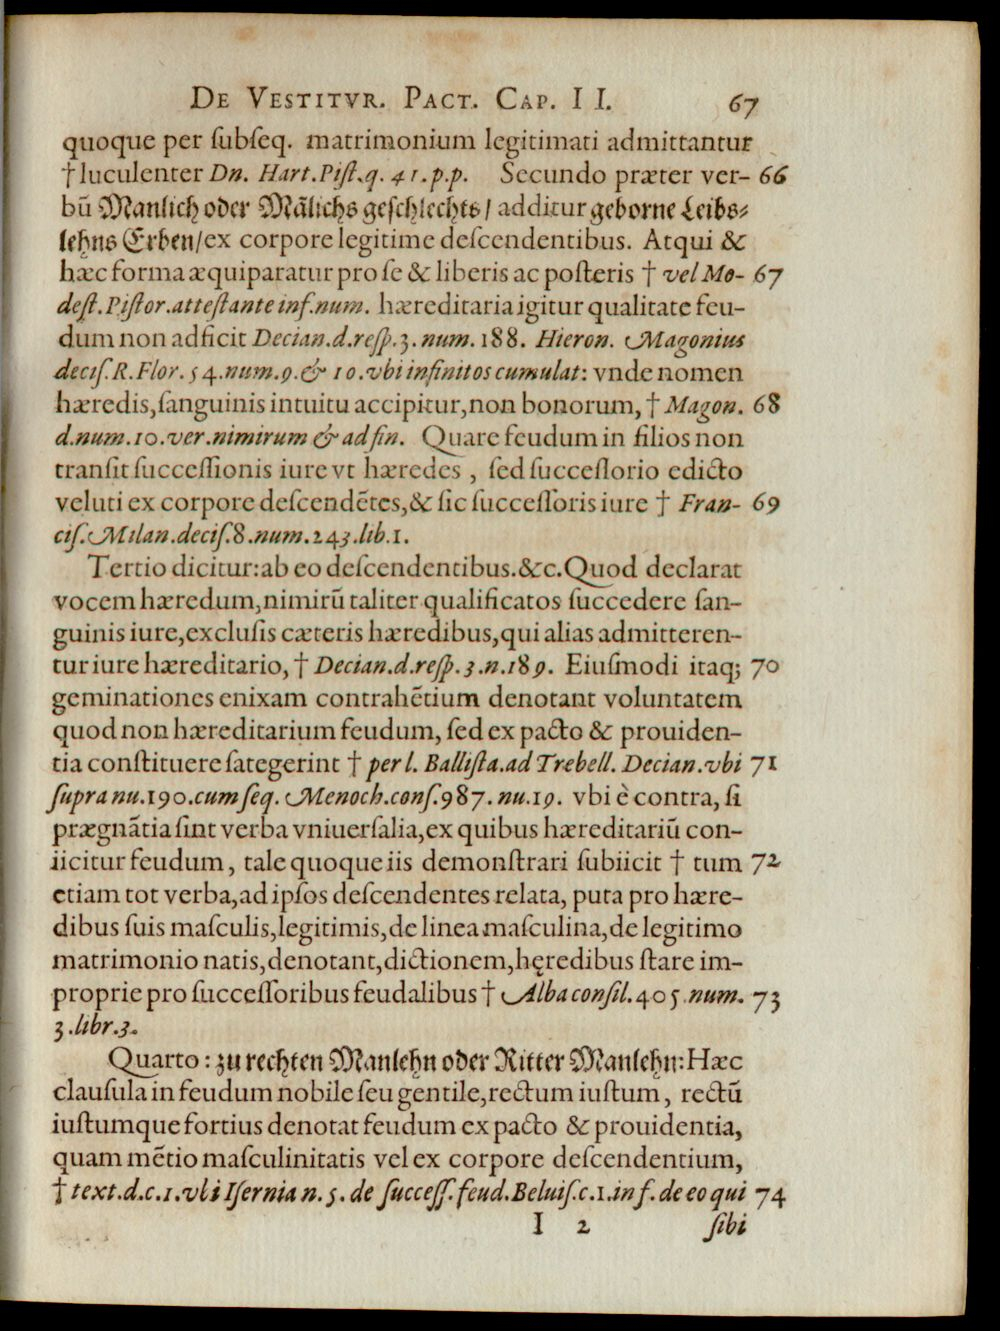 De Vestitvr. Pact. Cap. II. 67
quoque per ſubſeq. matrimonium legitimati admittantur
†luculenter Dn. Hart. Piſt. q. 41. p.p. Secundo præter ver- 66
bū Manlich oder Mālichs geſchlechts/ additur geborne Leibs⸗
lehns Erben/ex corpore legitime deſcendentibus. Atqui &
hæc forma æquiparatur pro ſe & liberis ac poſteris † vel Mo- 67
deſt. Piſtor. atteſtante inf. num. hæreditaria igitur qualitate feu-
dum non adficit Decian. d. reſp. 3. num. 188. Hieron. Magonius
deciſ. R. Flor. 54. num. 9. & 10. vbi infinitos cumulat: vnde nomen
hæredis, ſanguinis intuitu accipitur, non bonorum, † Magon. 68
d. num. 10. ver. nimirum & ad fin. Quare feudum in filios non
tranſit ſucceſſionis iure vt hæredes , ſed ſucceſſorio edicto
veluti ex corpore deſcendētes, & ſic ſucceſſoris iure † Fran- 69
ciſ. Milan. deciſ. 8. num. 243. lib. 1.
Tertio dicitur: ab eo deſcendentibus. &c. Quod declarat
vocem hæredum, nimirū taliter qualificatos ſuccedere ſan-
guinis iure, excluſis cæteris hæredibus, qui alias admitteren-
tur iure hæreditario, † Decian. d. reſp. 3. n. 189. Eiuſmodi itaq; 70
geminationes enixam contrahētium denotant voluntatem
quod non hæreditarium feudum, ſed ex pacto & prouiden-
tia conſtituere ſategerint † per l. Balliſta. ad Trebell. Decian. vbi 71
ſupra nu. 190. cum ſeq. Menoch. conſ. 987. nu. 19. vbi è contra, ſi
prægnātia ſint verba vniuerſalia, ex quibus hæreditariū con-
iicitur feudum, tale quoque iis demonſtrari ſubiicit † tum 72
etiam tot verba, ad ipſos deſcendentes relata, puta pro hære-
dibus ſuis maſculis, legitimis, de linea maſculina, de legitimo
matrimonio natis, denotant, dictionem, hęredibus ſtare im-
proprie pro ſucceſſoribus feudalibus † Alba conſil. 405. num. 73
3. libr. 3.
Quarto: zu rechten Manlehn oder Ritter Manlehn: Hæc
clauſula in feudum nobile ſeu gentile, rectum iuſtum, rectū
iuſtumque fortius denotat feudum ex pacto & prouidentia,
quam mētio maſculinitatis vel ex corpore deſcendentium,
† text. d. c. 1. vbi Iſernia n. 5. de ſucceſſ. feud. Beluiſ. c. 1. in f. de eo qui 74
I 2 ſibi